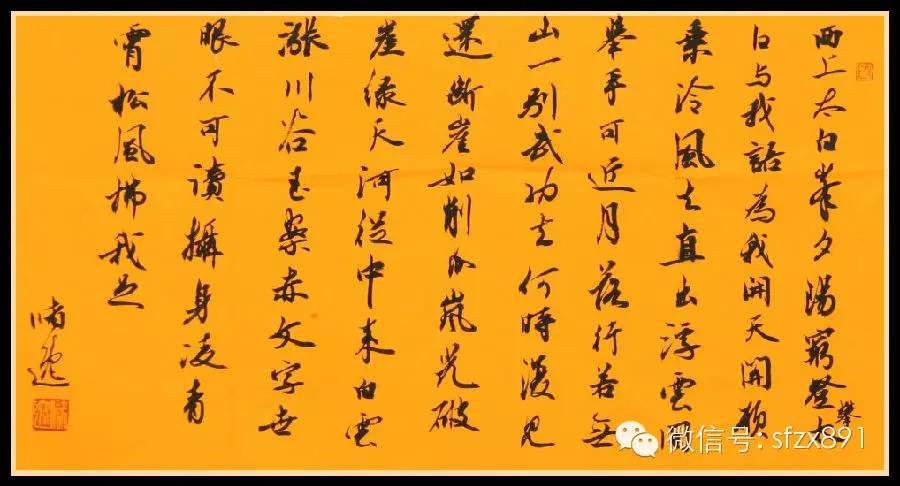 西上太白峯夕陽窮登攀太
白与我語為我開天開願
乘泠風去直出浮雲間
舉手可近月前行若無
山一別武功去何時復見
還斷崖如削瓜嵐光破
崖緑天河從中来白雲
漲川谷玉案赤文字世
眼不可讀攝身凌青
霄松風拂我足
微信号: sfzx891